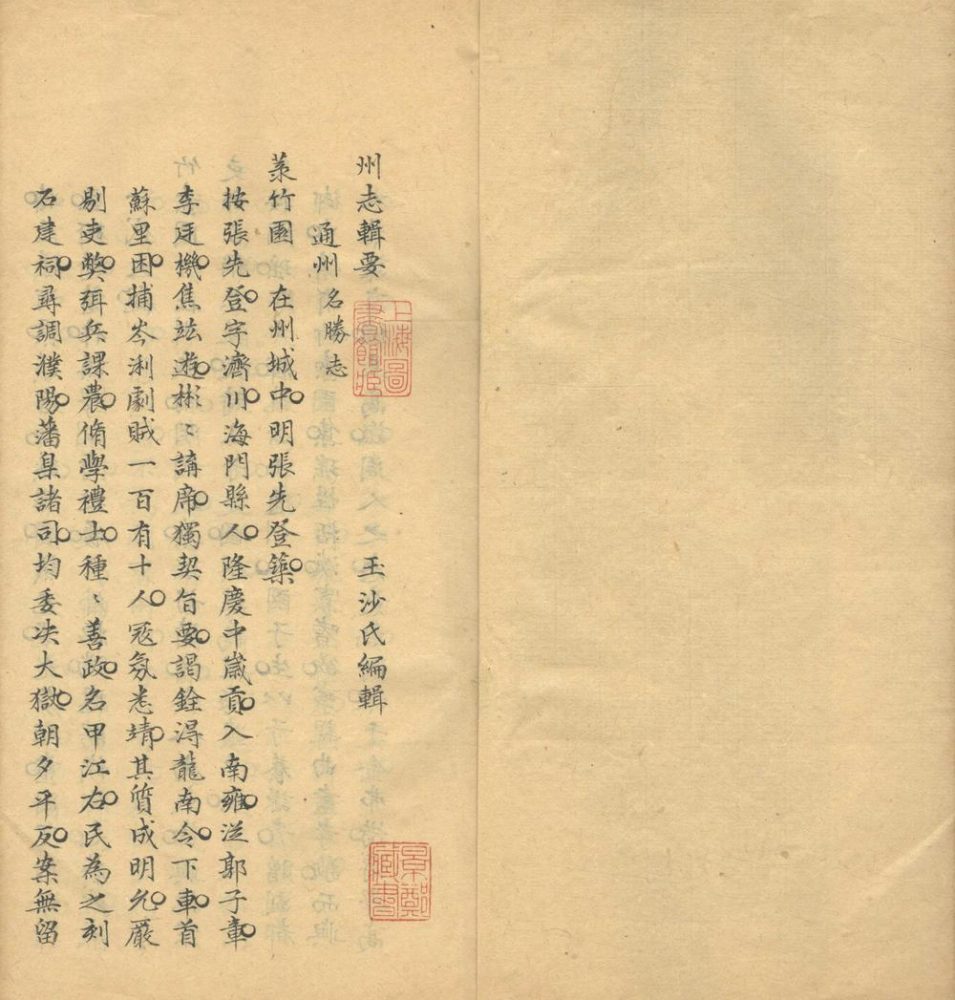 州志輯要 玉沙氏編輯
通州名勝志
菉竹園 在州城中明張先登築
按張先登字濟川海門縣人隆慶中歲貢入南雍從郭子章
李廷機焦竑遊彬〻講席獨契旨要謁銓得龍南令下車首
蘇里困捕岑浰劇賊一百有十人冦氛悉靖其質成明允嚴
剔吏弊弭兵課農脩學禮士種〻善政名甲江右民為之刻
石建祠尋調濮陽藩臬諸司均委决大獄朝夕平反案無留
上海圖書館藏
景鄭藏書